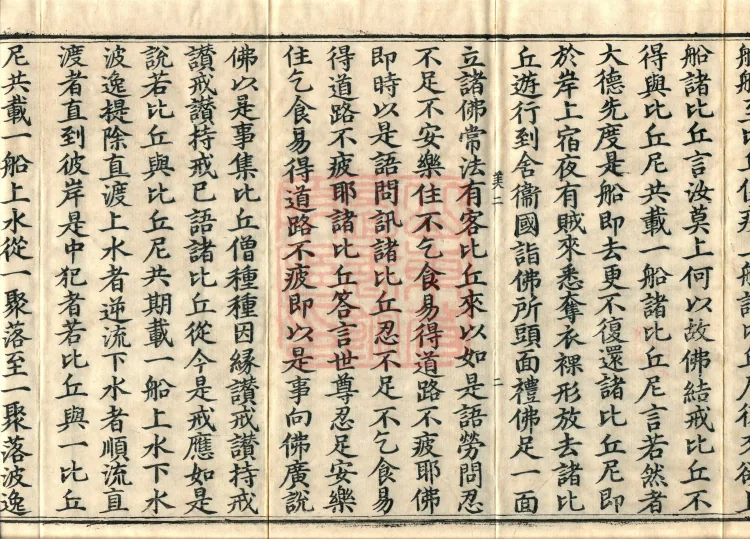 船諸比丘言汝莫上何以故佛結戒比丘不
得與比丘尼共載一船諸比丘尼言若然者
大德先度是船即去更不復還諸比丘尼即
於岸上宿夜有賊來悉奪衣裸形放去諸比
丘遊行到舍衞國詣佛所頭面禮佛足一面
美二
二
立諸佛常法有客比丘來以如是語勞問忍
不足不安樂住不乞食易得道路不疲耶佛
即時以是語問訊諸比丘忍不足不乞食易
得道路不疲耶諸比丘答言世尊忍足安樂
住乞食易得道路不疲即以是事向佛廣說
佛以是事集比丘僧種種因緣讃戒讃持戒
讃戒讃持戒已語諸比丘從今是戒應如是
說若比丘與比丘尼共期載一船上水下水
波逸提除直渡上水者逆流下水者順流直
渡者直到彼岸是中犯者若比丘與一比丘
尼共載一船上水從一聚落至一聚落波逸